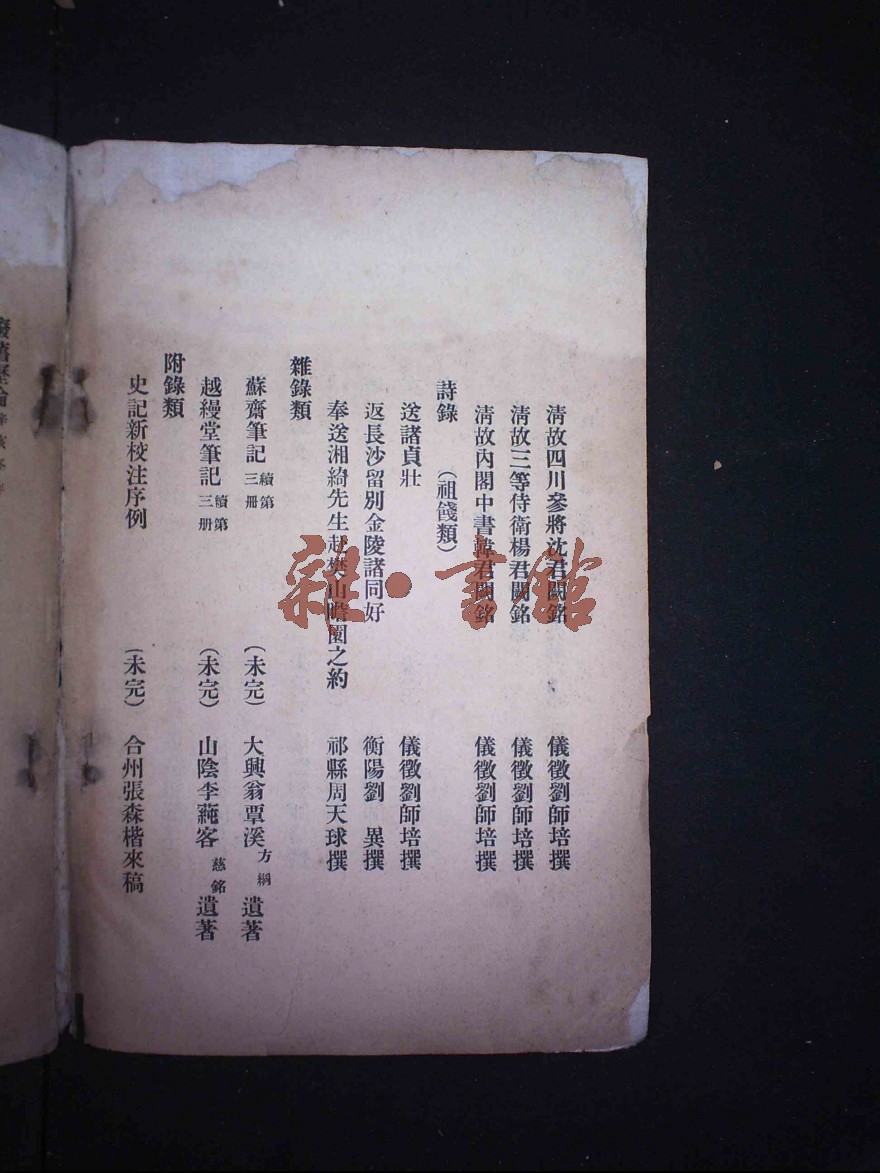 清故四川參將沈君闕銘 儀徵劉師培撰
清故三等侍衛楊君闕銘 儀徵劉師培撰
清故內閣中書韓君闕銘 儀徵劉師培撰
詩錄 (祖餞類)
送諸貞壯 儀徵劉師培撰
返長沙留別金陵諸同好 衡陽劉 異撰
奉送湘綺先生赴樊山瞻園之約 祁縣周天球撰
雜錄類
蘇齋筆記 續第三冊 (未完) 大興翁覃溪 方綱 遺著
越縵堂筆記 續第三册 (未完) 山陰李蒓客 慈銘 遺著
附錄類
史記新校注序例 (未完) 合州張森楷來稿
雜·書館